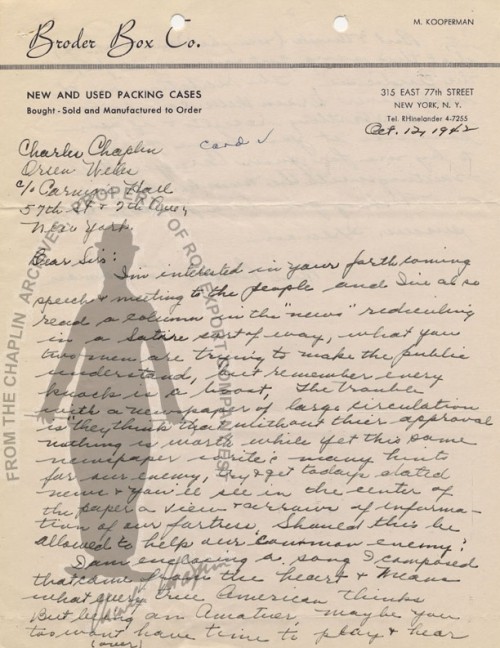 M. KOOPERMAN
Broder Box Co.
NEW AND USED PACKING CASES
Bought - Sold and Manufactured to Order
315 EAST 77th STREET
NEW YORK, N. Y.
Tel. RHinelander 4-7255
Oct. 12, 1942
card ✓
Charlie Chaplin
Orsen Weles
c/o Carnegie Hall
57th St & 7th Ave,
New York.
Dear Sirs:
I'm interested in your forthcoming
speech & meeting to the people and I've also
read a column in the "news" rediculing
in a Satire sort of way, what you
two men are trying to make the public
understand, but remember every
knock is a boost, The trouble
with a newspaper of large circulation
is they think that without their approval
nothing is worth while yet this same
newspaper write's many hints
for our enemy, try & get todays dated
news & you'll see in the center of
the paper a view & arrows of informa-
tion of our fortress. Should this be
allowed to help our common enemy?
I am enclosing a song I composed
that came from the heart & Means
what every true American thinks
But being an Amatuer, maybe you
too wont have time to play & hear
(over)
FROM THE CHAPLIN ARCHIVES PROPERTY OF ROY EXPORT COMPANY EST